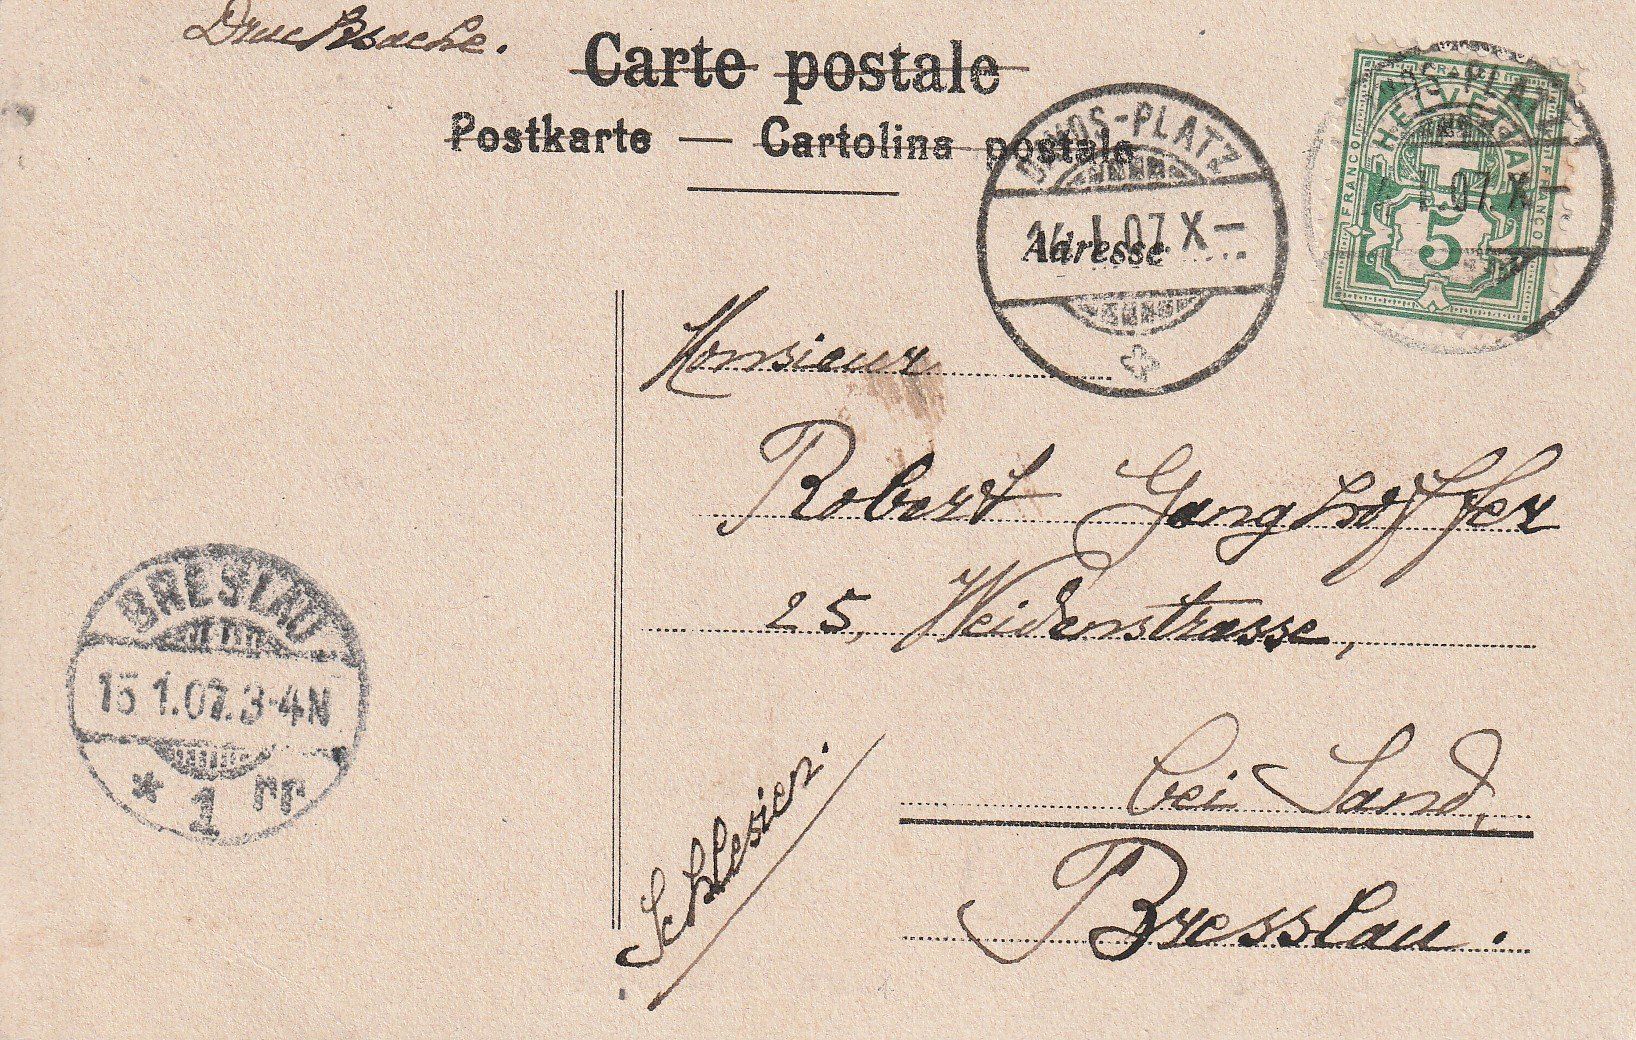 Drucksache.
Carte postale
Postkarte — Cartolina postale
DAVOS-PLATZ
14. I.07.X—
FRANCO
HELVETIA
FRANCO
FRANCO
5
-PLATZ
I.07.X—
Adresse
Monsieur
Robert Ganghoffer
25, Weidenstrasse,
bei Sand,
Bresslau.
Schlesien
BRESLAU
15 1.07.3-4N
* 1 rr